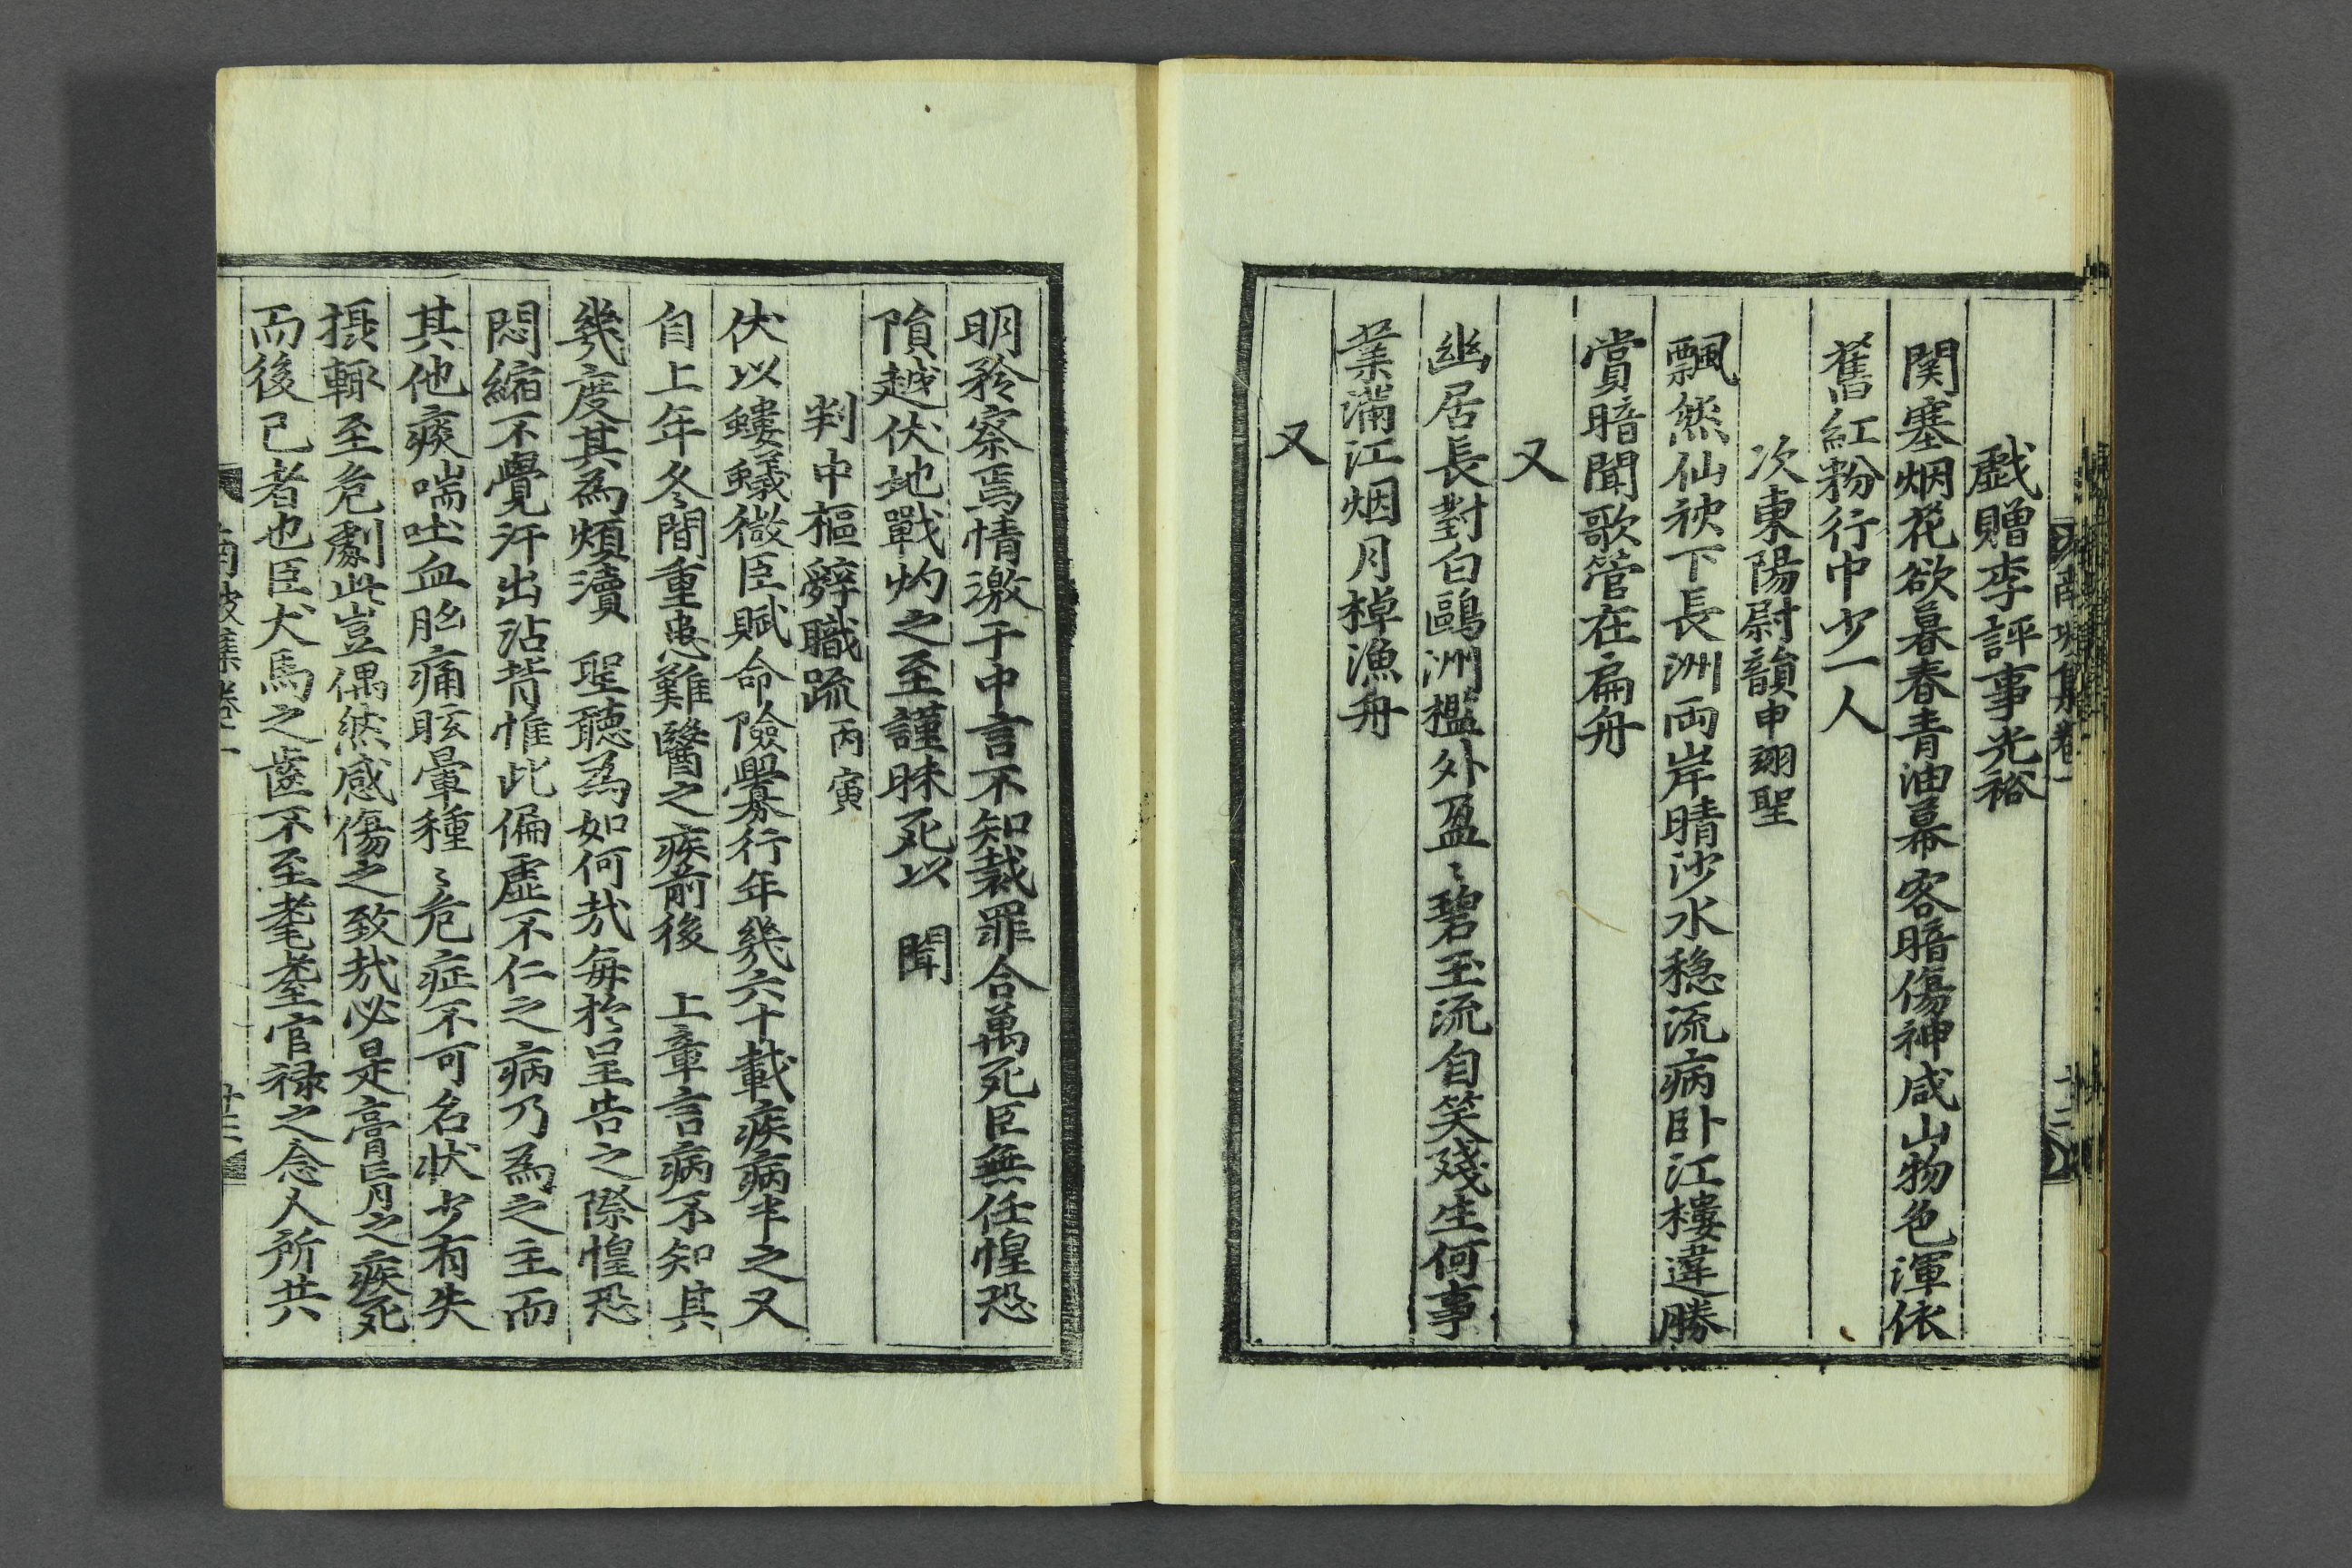 戲贈李評事光裕
関塞烟花欲暮春青油幕客暗傷神咸山物色渾依
舊紅粉行中少一人
次東陽尉韻申翊聖
飄然仙袂下長洲両岸晴沙水穏流病卧江樓違勝
賞暗聞歌管在扁舟
又
幽居長對白鷗洲檻外盈〻碧玉流自笑殘生何事
業滿江烟月棹漁舟
又
明矜察焉情激于中言不知裁罪合萬死臣無任惶恐
隕越伏地戰灼之至謹昧死以 聞
判中樞辭職疏丙寅
伏以螻蟻微臣賦命險釁行年幾六十載疾病半之又
自上年冬間重患難醫之疾前後 上章言病不知其
幾度其為煩瀆 聖聽為如何㢤每於呈告之際惶恐
悶縮不覺汗出沾背惟此偏虛不仁之病乃為之主而
其他痰喘吐血胎痛眩暈種〻危症不可名狀少有失
摂輙至危劇此豈偶然感傷之致㢤必是膏肓之疾死
而後已者也臣犬馬之齒不至耄耋官祿之念人所共